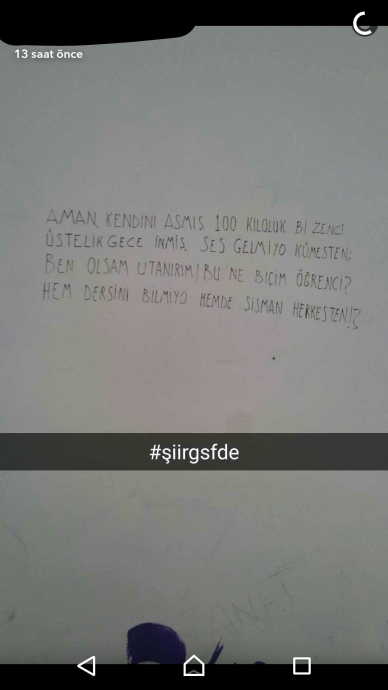 13 saat önce
AMAN, KENDİNİ ASMIS 100 KİLOLUK Bİ ZENCİ
ÜSTELİK GECE İNMİŞ, SES GELMİYO KÜMESTEN;
BEN OLSAM UTANIRIM! BU NE BİÇİM ÖĞRENCİ?
HEM DERSİNİ BİLMİYO HEMDE SİSMAN HERKESTEN!
#şiirgsfde
SANAT